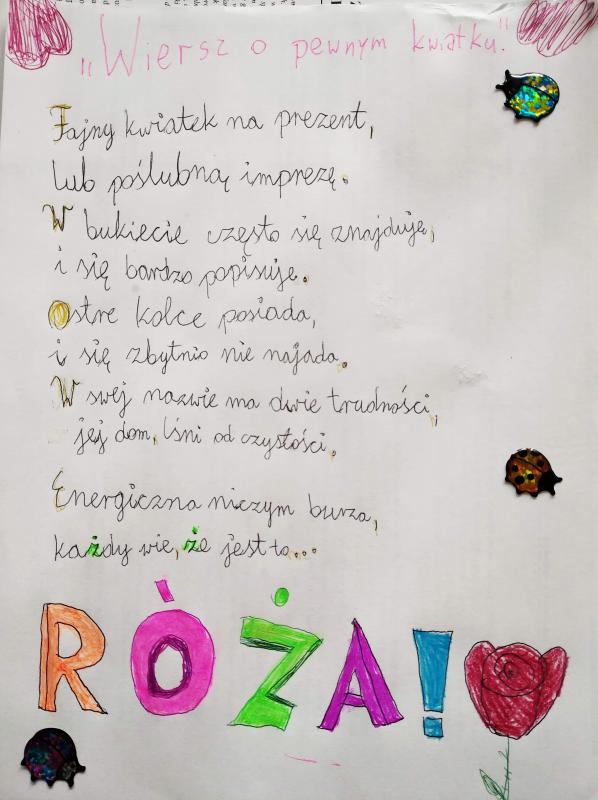 „Wiersz o pewnym kwiatku."
Fajny kwiatek na prezent,
lub poślubną imprezę.
W bukiecie często się znajduje,
i się bardzo popisuje.
Ostre kolce posiada,
i się zbytnio nie najada.
W swej nazwie ma dwie trudności,
jej dom, lśni od czystości.
Energiczna niczym burza,
każdy wie, że jest to...
RÓŻA!